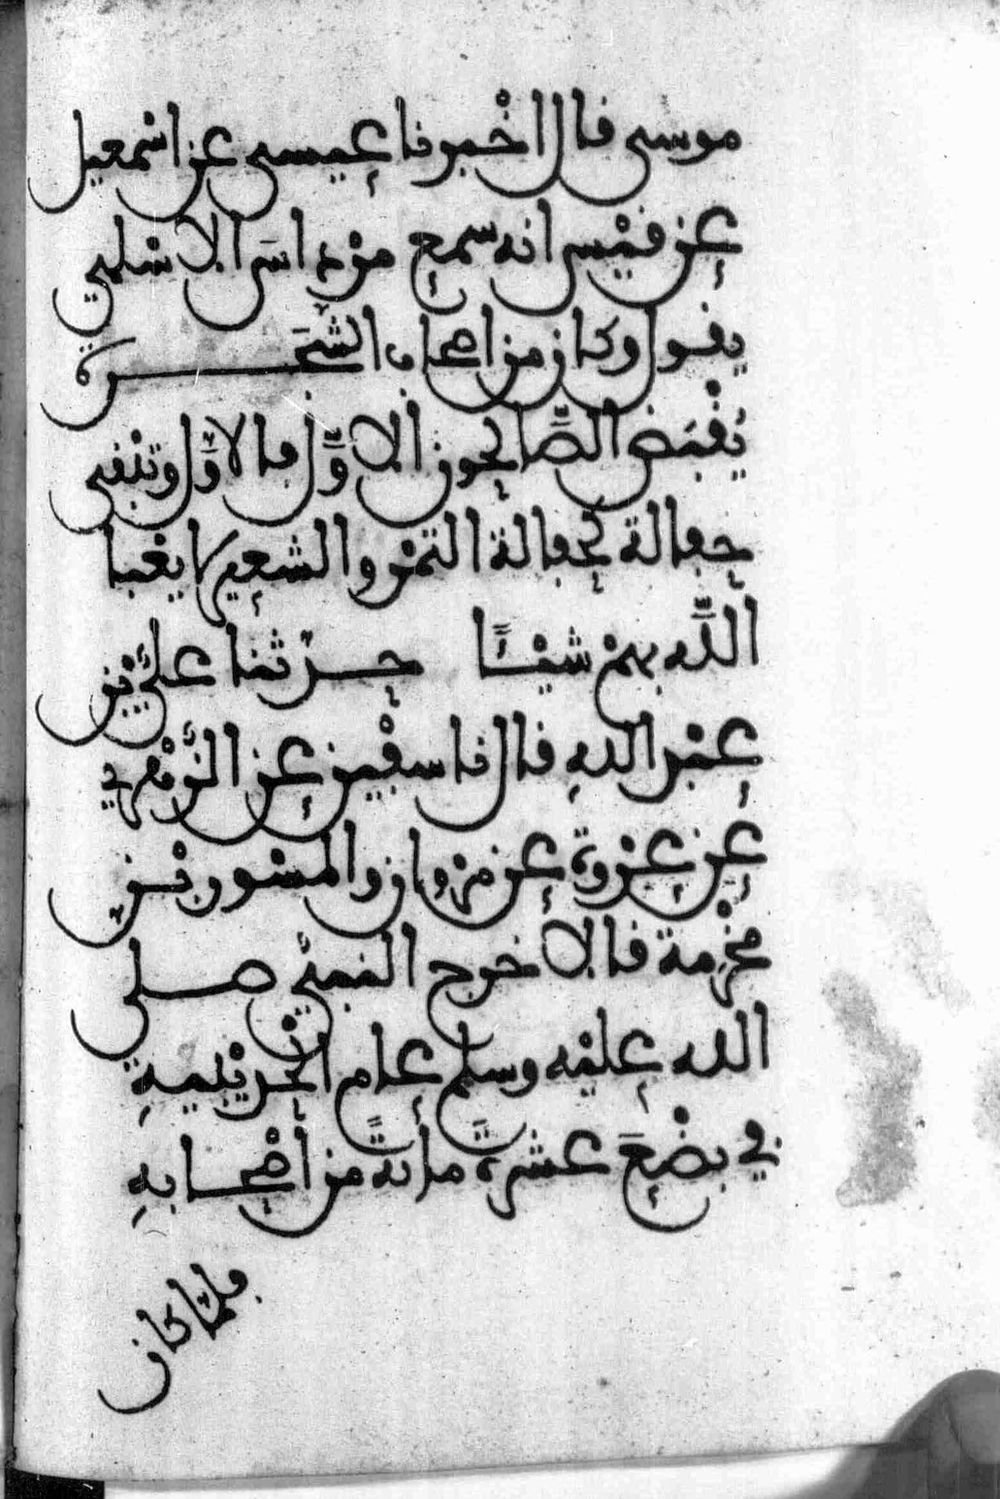 موسى قال اخْبرنا عيسى عن اسْمعيل
عن قيْس انه سمع مرْداسَ الاسْلمي
يقول وكان من اصحاب الشَّجَرة
يُقْبَض الصَّالحون الاوَّل فالاوَّل وتبْقى
حفالة كحفالة التمْر والشعير لا يعْبا
اللَّه بهمْ شيْـًٔا حدّثنا عليّ بْن
عبْد الله قال نا سفْين عن الزّهْري
عن عرْوة عن مرْوان والمسْور بْن
مخْرمة قالا خرج النبيّ صلى
الله عليْه وسلم عام الْحديْبية
في بضْعَ عشرةَ مائةً من أصْحابهِ
فلمّا كان